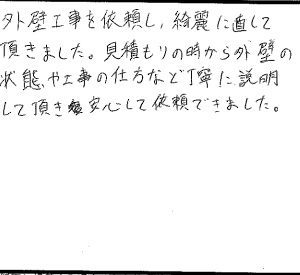 外壁工事を依頼し、綺麗に直して
頂きました。見積もりの時から外壁の
状態や工事の仕方など丁寧に説明
して頂き安心して依頼できました。